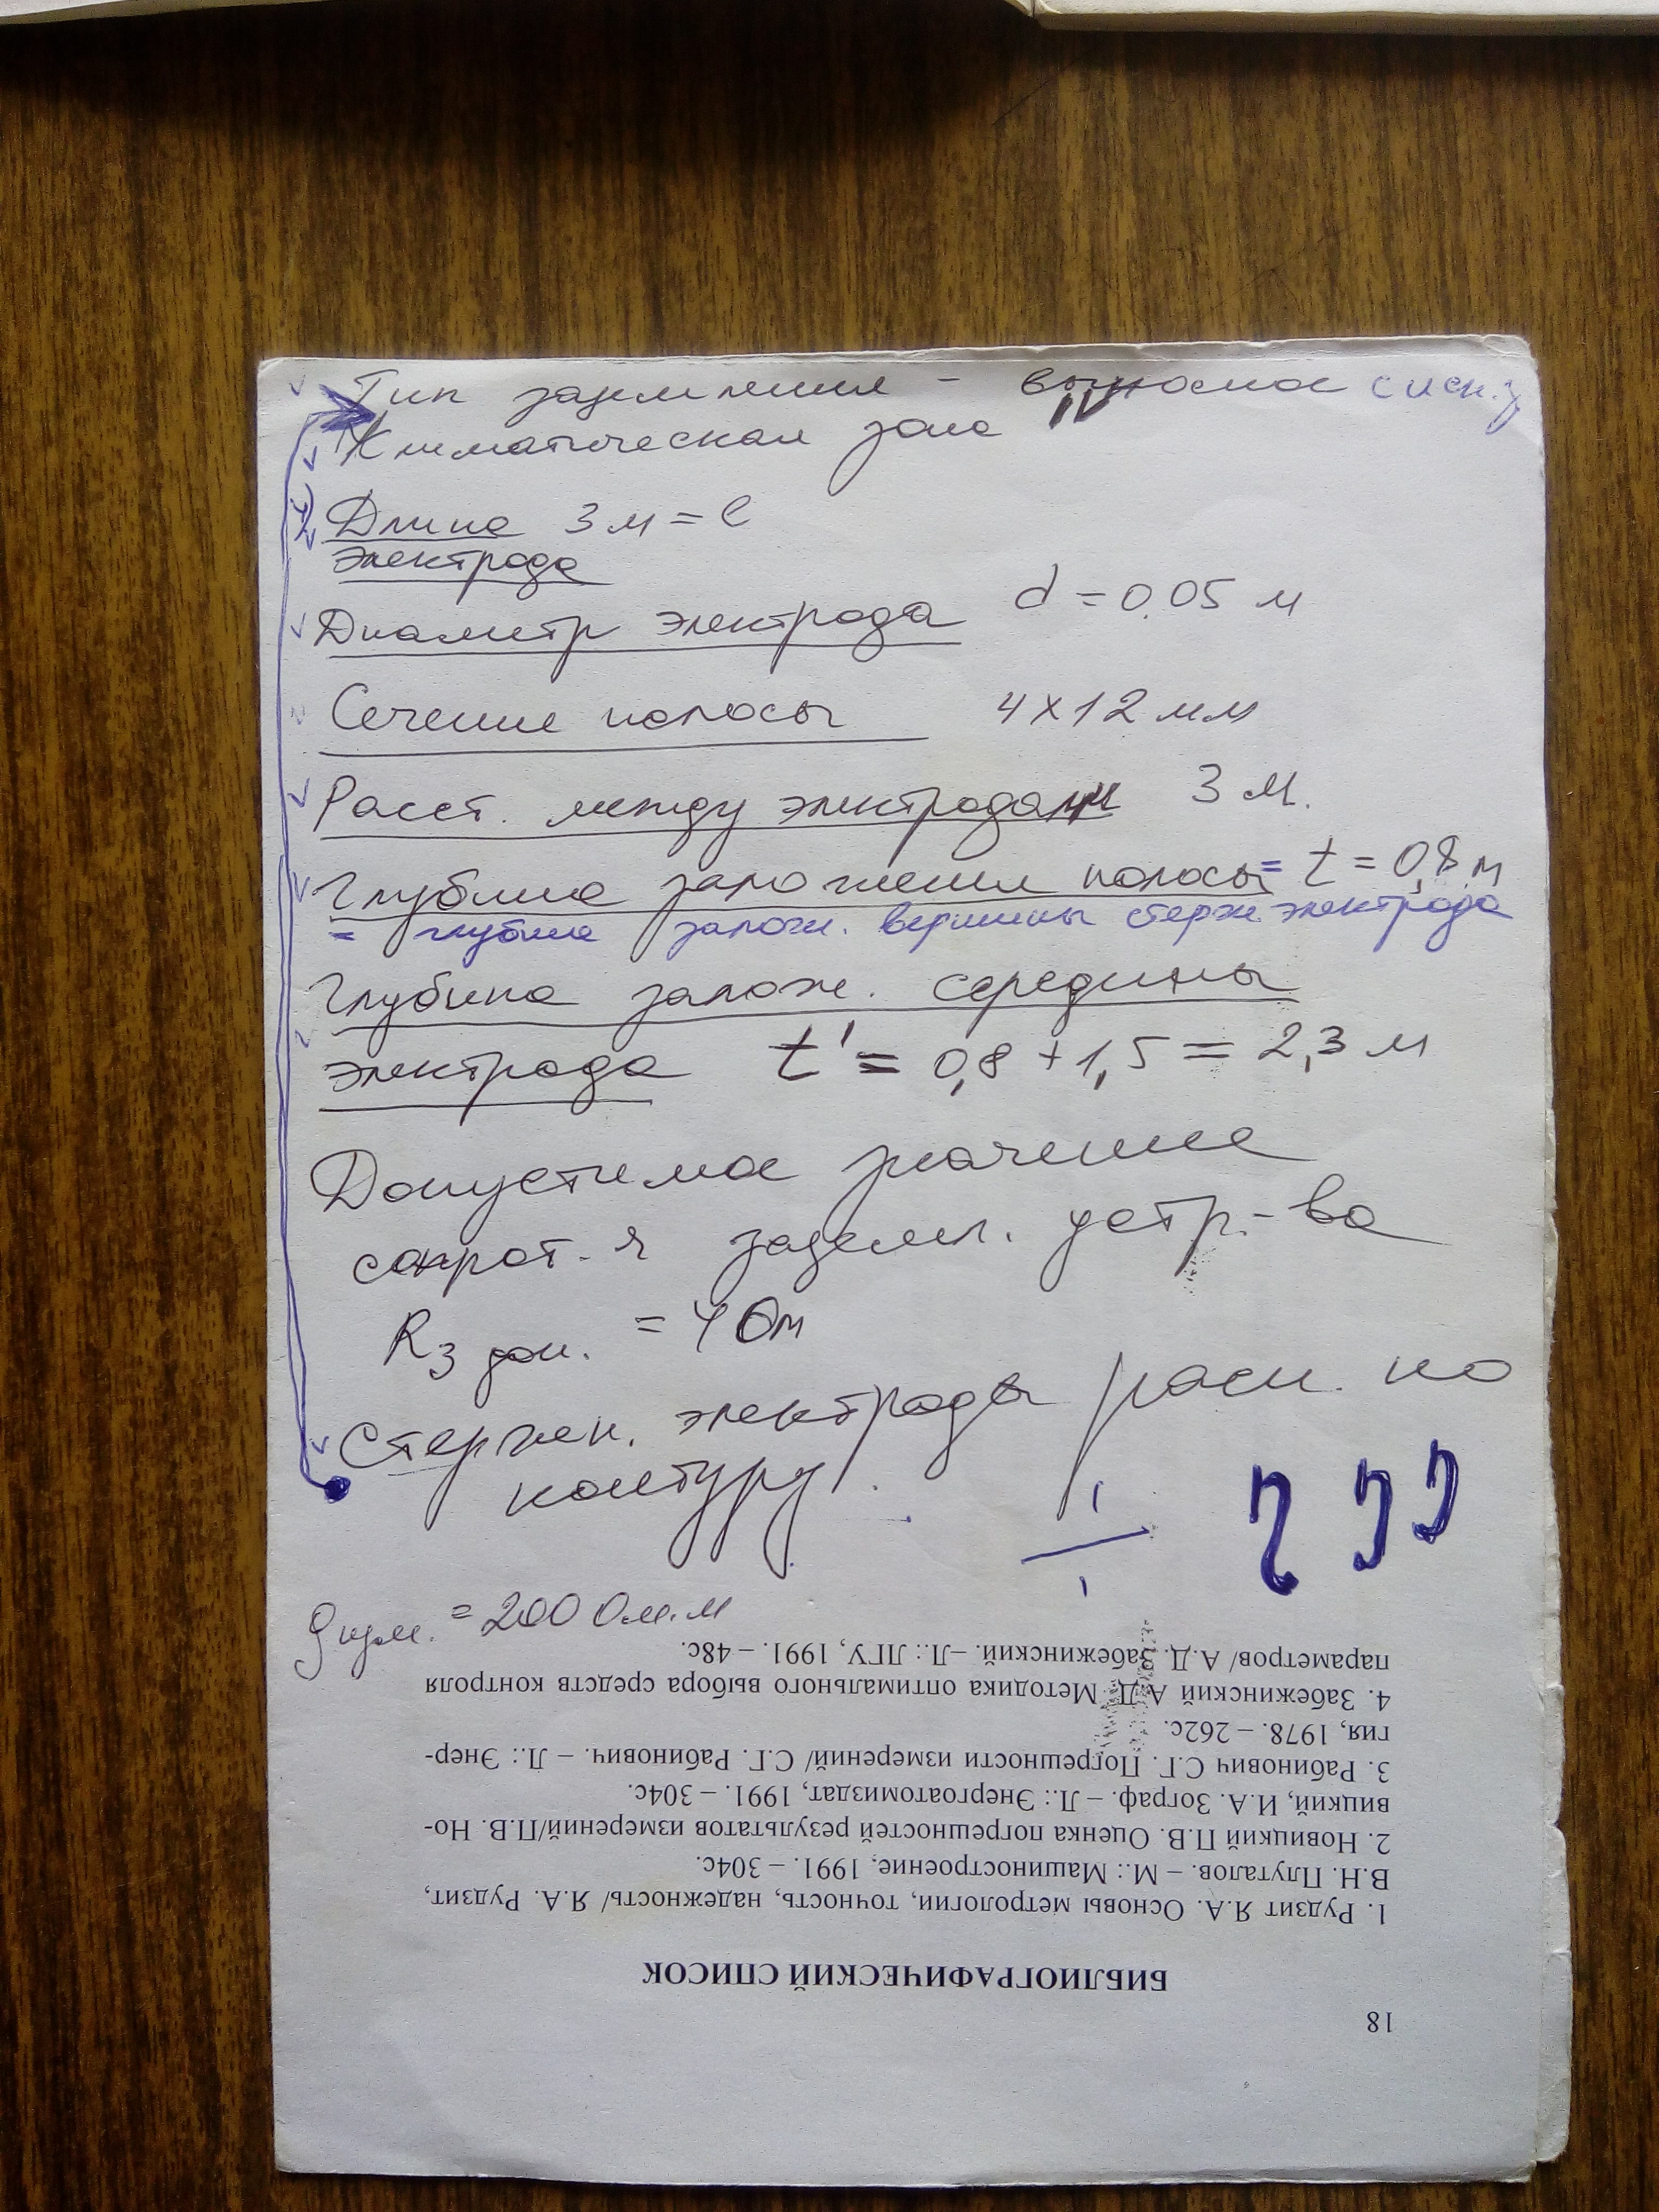 Тип заземления - выносное
Климатическая зона IV
Длина 3 м = l
электрода
Диаметр электрода d = 0.05 м
Сечение полосы 4х12 мм
Расст. между электродами 3 м.
Глубина заложения полосы = t = 0,8 м
= глубине залож. вершины стержн электрода
Глубина залож. середины
электрода t' = 0,8 + 1,5 = 2,3 м
Допустимое значение
сопрот-я заземл. устр-ва
Rз доп. = 4 Ом
Стержн. электроды расп. по
контуру.
ρизм. = 200 Ом.м
18
БИБЛИОГРАФИЧЕСКИЙ СПИСОК
1. Рудзит Я.А. Основы метрологии, точность, надежность/ Я.А. Рудзит,
В.Н. Плуталов. – М.: Машиностроение, 1991. – 304с.
2. Новицкий П.В. Оценка погрешностей результатов измерений/П.В. Но-
вицкий, И.А. Зограф. – Л.: Энергоатомиздат, 1991. – 304с.
3. Рабинович С.Г. Погрешности измерений/ С.Г. Рабинович. – Л.: Энер-
гия, 1978. – 262с.
4. Забежинский А.Д. Методика оптимального выбора средств контроля
параметров/ А.Д. Забежинский. –Л.: ЛГУ, 1991. – 48с.